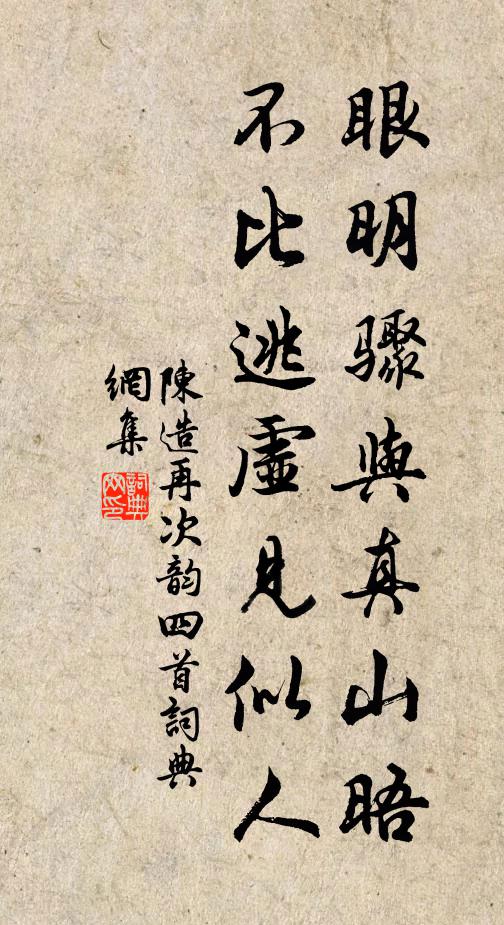 眼明骤與真山晤
不比逃虛見似人
陳造再次韵四首詞典
網集
詞典
網印